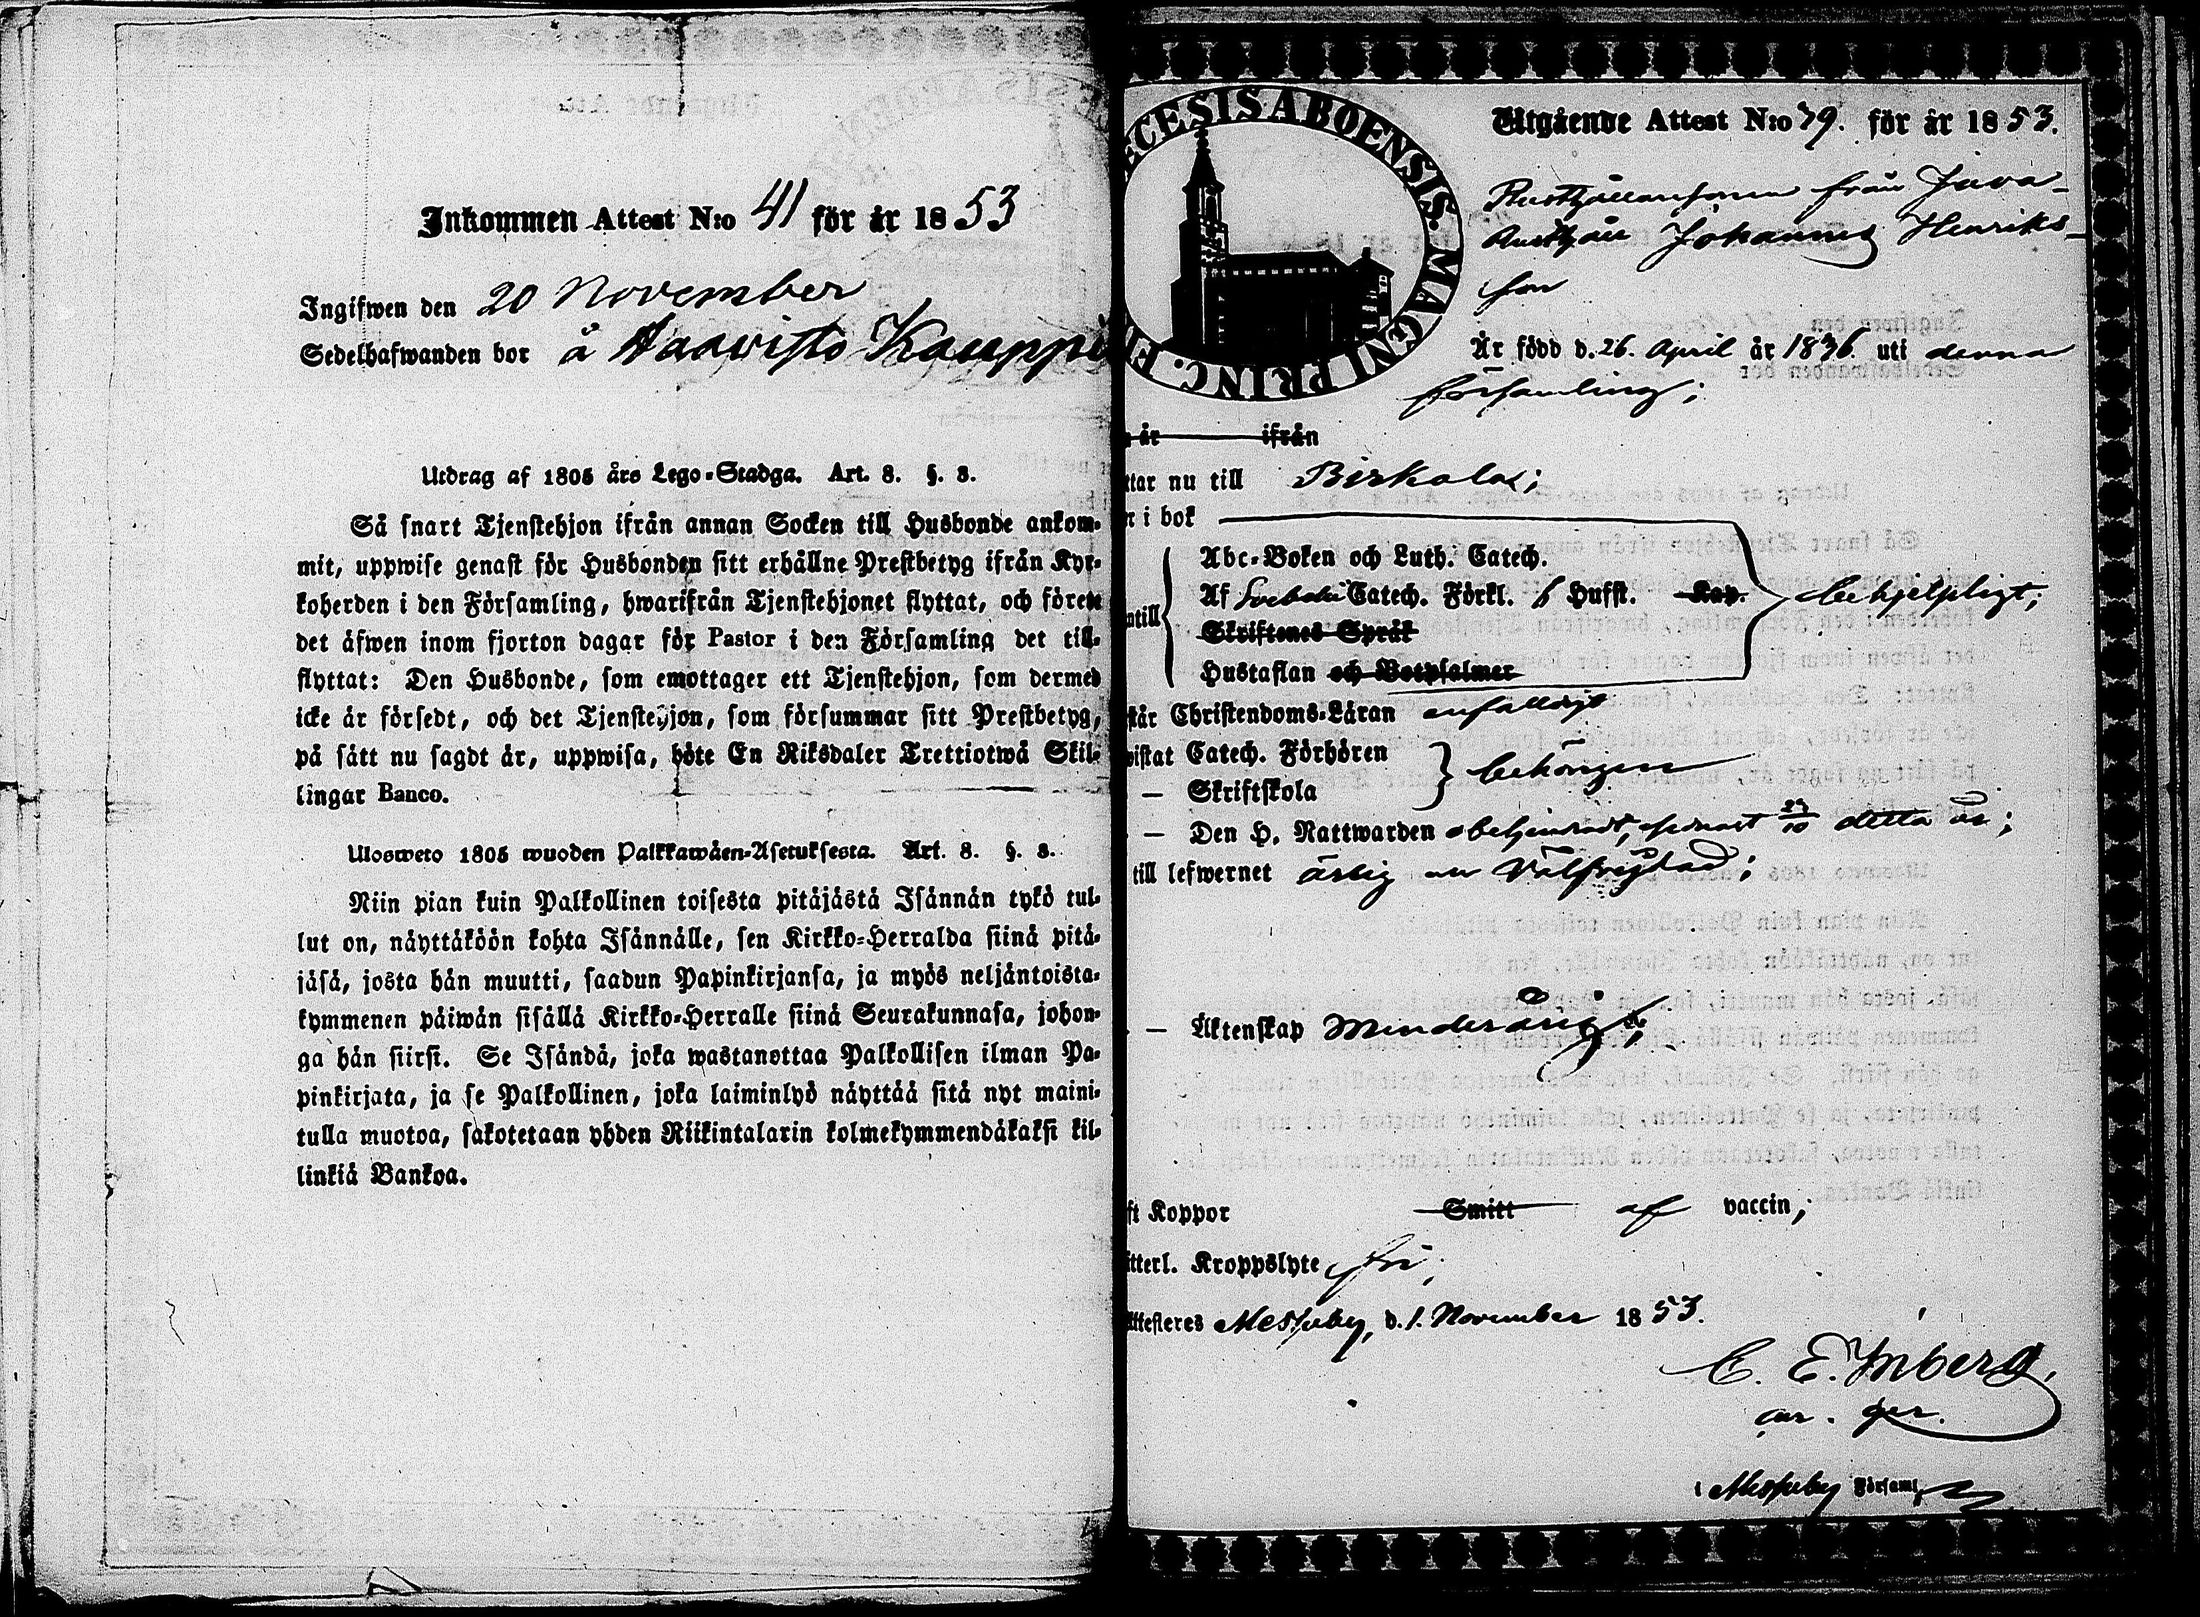 Inkommen Attest N:o 41 för år 1853
Ingifwen den 20 November
Sedelhafwanden bor å Haavisto Kauppi
Utdrag af 1805 års Lego-Stadga. Art. 8. §. 3.
Så snart Tjenstehjon ifrån annan Socken till Husbonde ankom-
mit, uppwise genast för Husbonden sitt erhållne Prestbetyg ifrån Kyr-
koherden i den Församling, hwarifrån Tjenstehjonet flyttat, och förete
det äfwen inom fjorton dagar för Pastor i den Församling det till-
flyttat: Den Husbonde, som emottager ett Tjenstehjon, som dermed
icke är försedt, och det Tjenstehjon, som försummar sitt Prestbetyg,
på sätt nu sagdt är, uppwisa, böte En Riksdaler Trettiotwå Skil-
lingar Banco.
Ulosweto 1805 wuoden Palkkawäen-Asetuksesta. Art. 8. §. 3.
Niin pian kuin Palkollinen toisesta pitäjästä Isännän tykö tul-
lut on, näyttäköön kohta Isännälle, sen Kirkko-Herralda siinä pitä-
jäsä, josta hän muutti, saadun Papinkirjansa, ja myös neljäntoista-
kymmenen päiwän sisällä Kirkko-Herralle siinä Seurakunnasa, johon-
ga hän siirsi. Se Isändä, joka wastanottaa Palkollisen ilman Pa-
pinkirjata, ja se Palkollinen, joka laiminlyö näyttää sitä nyt maini-
tulla muotoa, sakotetaan yhden Riikintalarin kolmekymmendäkaksi kil-
linkiä Bankoa.
ECESIS ABOENSIS. MAGNI PRINC. F
Utgående Attest N:o 79. för år 1853.
Rusthållaresonen från Java-
Rusthåll Johannes Henriks-
son
Är född d. 26. April år 1836. uti denna
församling;
år ifrån
ttar nu till Birkala;
r i bok
ntill
Abc-Boken och Luth. Catech.
Af Svebelii Catech. Förkl. 6 Hufst. Kap.
Skriftenes Språk
Hustaflan och Botpsalmer
behjelpligt;
står Christendoms-Läran enfaldigt
wistat Catech. Förhören
— Skriftskola
behörigen
— Den H. Nattwarden obehindradt, senast 23/10 detta år;
till lefwernet ärlig och välfrejdad;
— Äktenskap Minderårig;
ft Koppor Smitt af vaccin;
itterl. Kroppslyte fri;
Attesteres Messuby, d. 1. November 1853.
C. E. Inberg.
i Messuby Församl.